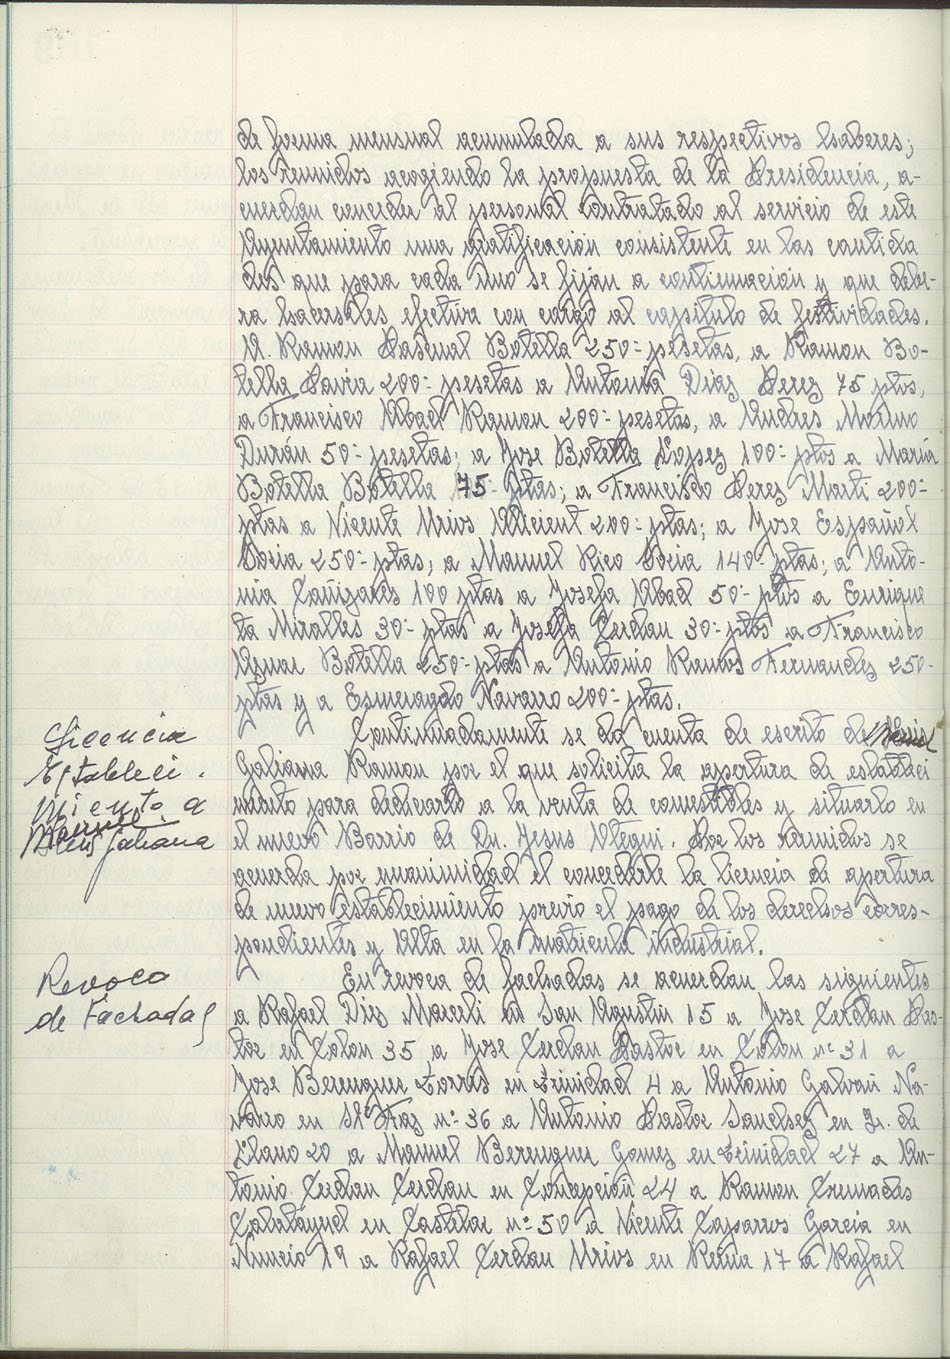 de forma mensual acumulada a sus respectivos haberes;
los reunidos acogiendo la propuesta de la Presidencia, a-
cuerdan conceder al personal contratado al servicio de este
Ayuntamiento una gratificación consistente en las cantida
des que para cada uno se fijan a continuación y que debe-
ra hacerseles efectiva con cargo al capitulo de festividades.
A. Ramon Pascual Botella 250- pesetas, a Ramon Bo-
tella Pavia 200- pesetas a Antonia Dias Perez 75 ptas,
a Francisco Abad Ramon 200- pesetas, a Andres Molino
Durán 50- pesetas; a Jose Botella Lopez 100- ptas a Maria
Botella Botella 75- ptas; a Francisco Perez Marti 200-
ptas a Vicente Mrios Alicient 200- ptas; a Jose Español
Soria 250- ptas; a Manuel Rico Soria 140- ptas; a Anto-
nia Cañizares 100 ptas a Josefa Abad 50- ptas a Enrique
ta Miralles 30- ptas a Josefa Cerdan 30- ptas a Francisco
Asnar Botella 250- ptas a Antonio Ramos Fernandez 250-
ptas y a Esmeragdo Navarro 200- ptas.
Licencia
Estableci.
miento a
Galiana
Continuadamente se da cuenta de escrito de
Galiana Ramon por el que solicita la apertura de estableci
miento para dedicarlo a la venta de comestibles y situarlo en
el nuevo Barrio de Dn. Jesus Ategui. Por los reunidos se
acuerda por unanimidad el concederle la licencia de apertura
de nuevo establecimiento previo el pago de los derechos corres-
pondientes y Alta en la matricula industrial.
Revoca
de Fachadas
En revoca de fachadas se acuerdan las siguientes
a Rafael Diez Marceli en San Agustin 15 a Jose Cerdan Pas-
tor en Colon 35 a Jose Cerdan Pastor en Colon nº 31 a
Jose Berenguer Torres en Trinidad 4 a Antonio Galvañ Na-
varro en Stª Faz nº 36 a Antonio Pastor Sanchez en Gr. de
Llano 20 a Manuel Berenguer Gomez en Trinidad 27 a An-
tonio Cerdan Cerdan en Concepción 24 a Ramon Cremades
Calatayud en Castelar nº 50 a Vicente Caparros Garcia en
Nuncio 19 a Rafael Cerdan Mrios en Reina 17 a Rafael